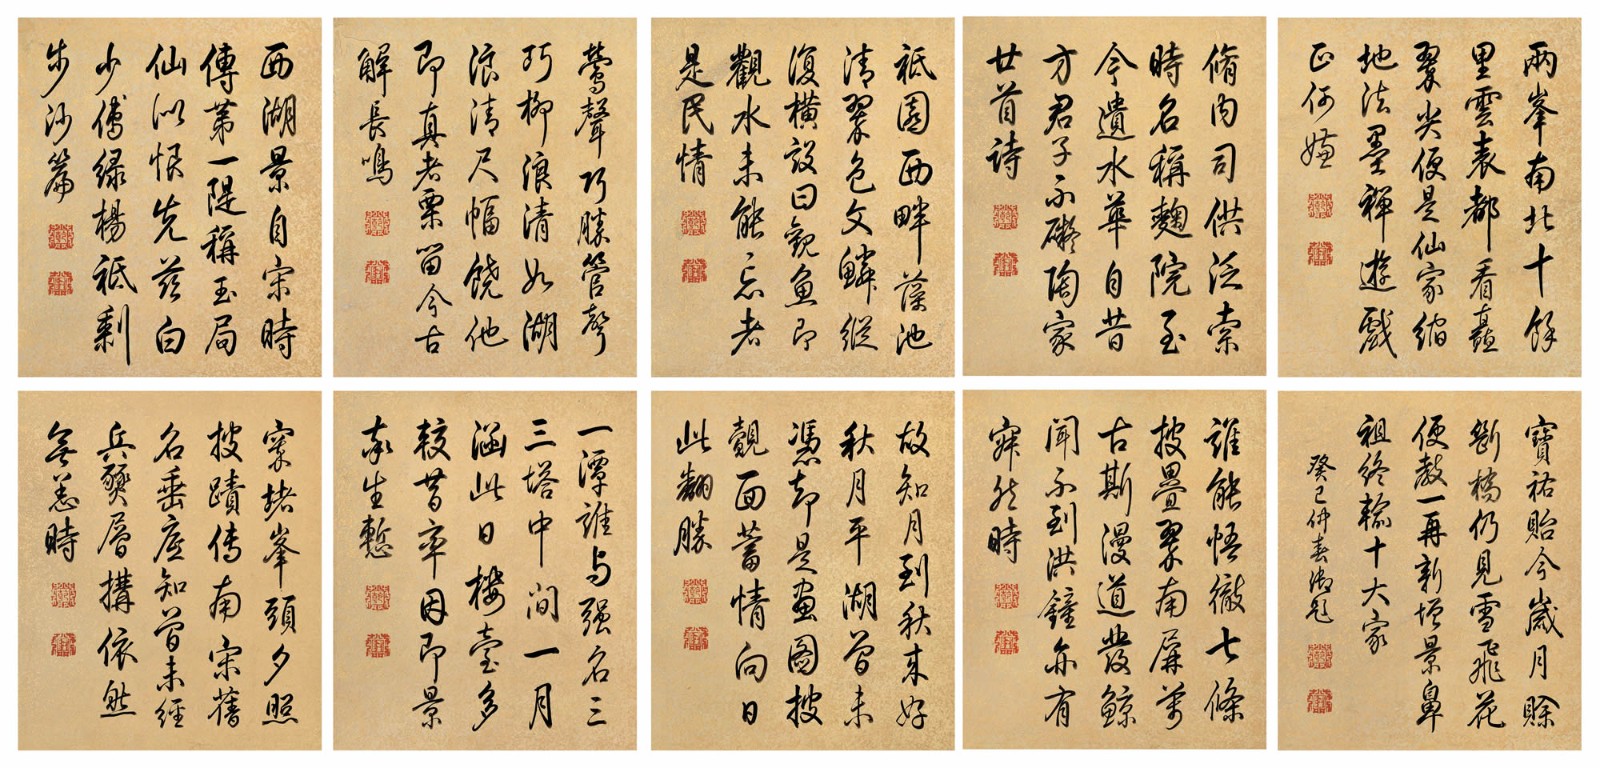 西湖景自宋時
傳第一隄稱玉局
仙似恨先茲白
少傅綠楊祗剩
步沙篇
鶯聲巧勝管聲
巧柳浪清如湖
浪清尺幅饒他
即真者栗留今古
解長鳴
祗園西畔藻池
清翠色文鱗縱
復橫設曰觀魚即
觀水未能忘者
是民情
脩內司供泛索
時名稱麴院至
今遺水華自昔
方君子不礙陶家
廿首詩
兩峯南北十餘
里雲表都看矗
翠尖便是仙家縮
地法墨禪遊戲
正何嫌
窣堵峯頭夕照
披蹟傳南宋舊
名垂底知曾未經
兵燹層搆依然
無恙時
一潭誰与强名三
三塔中間一月
涵此日樓臺多
較昔率因即景
牽生慙
故知月到秋來好
秋月平湖曾未
憑却是畫圖披
覿面蓄情向日
此翻勝
誰能悟徹七條
披疊翠南屏萬
古斯漫道發鯨
聞不到洪鐘亦有
寂然時
寶祐貽今歲月賒
斷橋仍見雪飛花
便教一再新增景鼻
祖終輸十大家
癸巳仲春御筆